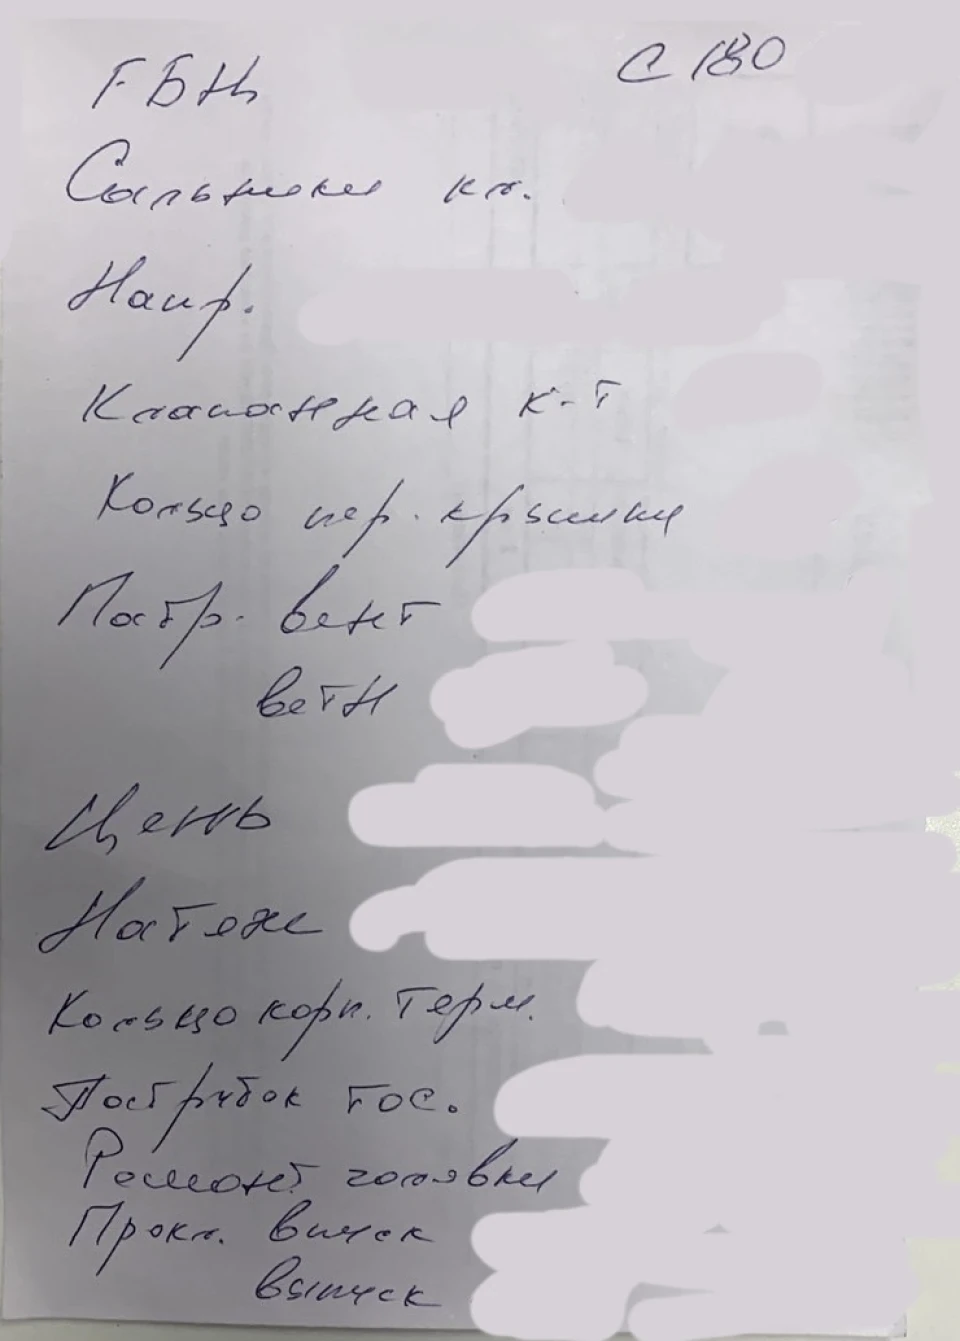 ГБЦ C 180
Сальники кл.
Напр.
Клапанная к-т
Кольцо пер. крышки
Патр. вент
ветн
Цепь
Натяж
Кольцо корп. Терм.
Патрубок Гос.
Ремонт головки
Прокл. впуск
выпуск